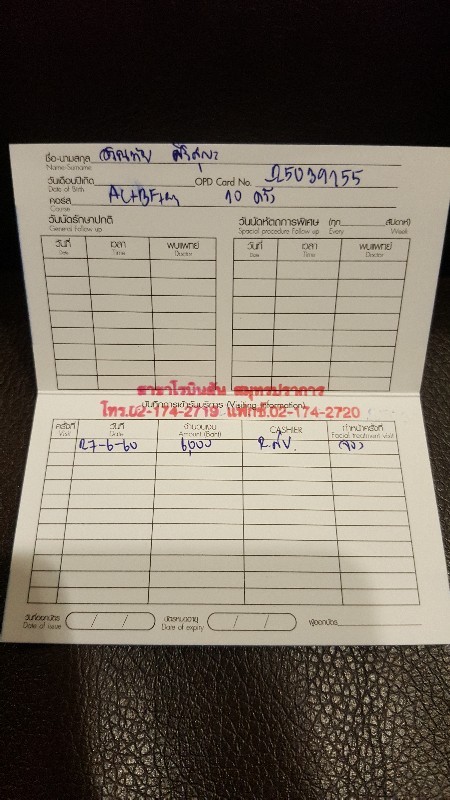 ชื่อ-นามสกุล
Name-Surname
วันเดือนปีเกิด OPD Card No. 25039155
Date of Birth
คอร์ส 10 ครั้ง
Course
วันนัดรักษาปกติ วันนัดหัตถการพิเศษ (ทุก สัปดาห์)
General Follow up Special procedure Follow up Every Week
วันที่ เวลา พบแพทย์ วันที่ เวลา พบแพทย์
Date Time Doctor Date Time Doctor
สาขาโรบินสัน สมุทรปราการ
บันทึกการเข้ารับบริการ (Visiting Information)
โทร.02-174-2719 แฟกซ์.02-174-2720
ครั้งที่ วันที่ จำนวนเงิน CASHIER ทำหน้าครั้งที่
Visit Date Amount (Baht) Facial treatment visit
27-6-60 6,000
วันที่ออกบัตร / / บัตรหมดอายุ / / ผู้ออกบัตร
Date of issue Date of expiry